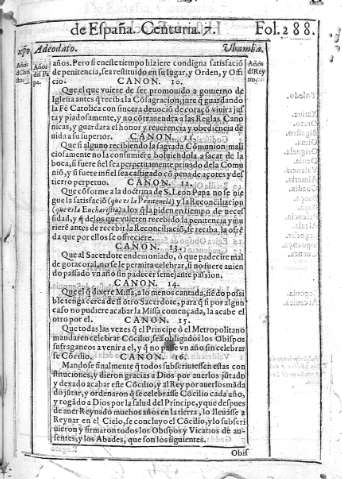 de España. Centuria. 7.
Fol. 288.
Adeodato.
Vbamba.
Años del Papa.
Años del Rey
años. Pero si en este tiempo hiziere condigna satisfació
de penitencia, sea restituido en su lugar, y Orden, y Oficio.
CANON. 10.
Que el que vuiere de ser promouido a gouierno de
Iglesia antes q̃ reciba la Cõsagracion, jure q̃ guardando
la Fè Catolica con sincera deuociõ de coraçõ viuirà jus-
ta y piadosamente, y no cõtrauendra a las Reglas Cano-
nicas, y guardara el honor y reuerencia y obediẽcia de-
uida a su superior.
CANON. 11.
Que si alguno recibiendo la sagrada Comunion mali
ciosamente no la consumiere boluiendola a sacar de la
boca, si fuere fiel sea perpetuamente priuado de la Comu
niõ, y si fuere infiel sea castigado cõ pena de açotes y des-
tierro perpetuo.
CANON. 12.
Que cõforme a la doctrina de S. Leon Papa no se nie
gue la satisfaciõ (que es la Penitencia) y la Reconciliacion
(que es la Eucharistia) a los q̃ la piden en tiempo de nece
sidad, y q̃ de los que vuieren recebido la penitencia y mu
rierẽ antes de recebir la Reconciliació, se reciba la ofrẽ
da que por ellos se ofreciere.
CANON. 13.
Que al Sacerdote endemoniado, ò que padeciere mal
de gota coral, no se le permita celebrar, si no fuere auien
do passado vn año sin padecer semejante passion.
CANON. 14.
Que el q̃ dixere Missa, a lo menos cantada, siẽdo posi
ble tenga cerca de si otro Sacerdote, para q̃ si por algun
caso no pudiere acabar la Missa començada, la acabe el
otro por el.
CANON. 15.
Que todas las vezes q̃ el Principe ò el Metropolitano
mandaren celebrar Cõcilio, seã obligados los Obispos
sufraganeos a venir a el, y q̃ no passe vn año sin celebrar
se Cõcilio.
CANON. 16.
Mandose finalmente q̃ todos subscriuiessen estas con
stituciones, y dieron gracias a Dios por auerlos jũtado
y dexado acabar este Cõcilio, y al Rey por auerlos mãda
do jũtar, y ordenaron q̃ se celebrasse Cõcilio cada año,
y rogãdo a Dios por la salud del Principe, y que despues
de auer Reynado muchos años en la tierra, lo lleuasse a
Reynar en el Cielo, se concluyo el Cõcilio, y lo subscri
uieron y firmaron todos los Obispos y Vicarios de au-
sentes, y los Abades, que son los siguientes.
Obis